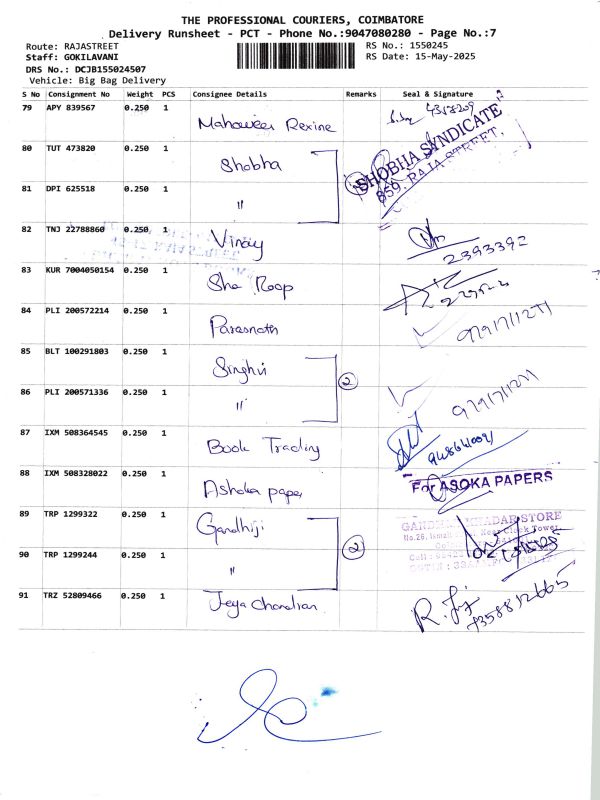 THE PROFESSIONAL COURIERS, COIMBATORE
Delivery Runsheet - PCT - Phone No.:9047080280 - Page No.:7
Route: RAJASTREET
RS No.: 1550245
Staff: GOKILAVANI
RS Date: 15-May-2025
DRS No.: DCJB155024507
Vehicle: Big Bag Delivery
S No Consignment No Weight PCS Consignee Details Remarks Seal & Signature
79 APY 839567 0.250 1 Mahaveer Rexine
80 TUT 473820 0.250 1 Shobha
SHOBHA SYNDICATE
859, RAJA STREET,
81 DPI 625518 0.250 1 "
82 TNJ 22788860 0.250 1 Vinay 2393392
83 KUR 7004050154 0.250 1 Sha Roop
84 PLI 200572214 0.250 1 Parasnath
85 BLT 100291803 0.250 1 Singhvi
2
86 PLI 200571336 0.250 1 "
87 IXM 508364545 0.250 1 Book Trading
88 IXM 508328022 0.250 1 Ashoka paper
For ASOKA PAPERS
89 TRP 1299322 0.250 1 Gandhiji
2
90 TRP 1299244 0.250 1 "
91 TRZ 52809466 0.250 1 Jeya Chandran